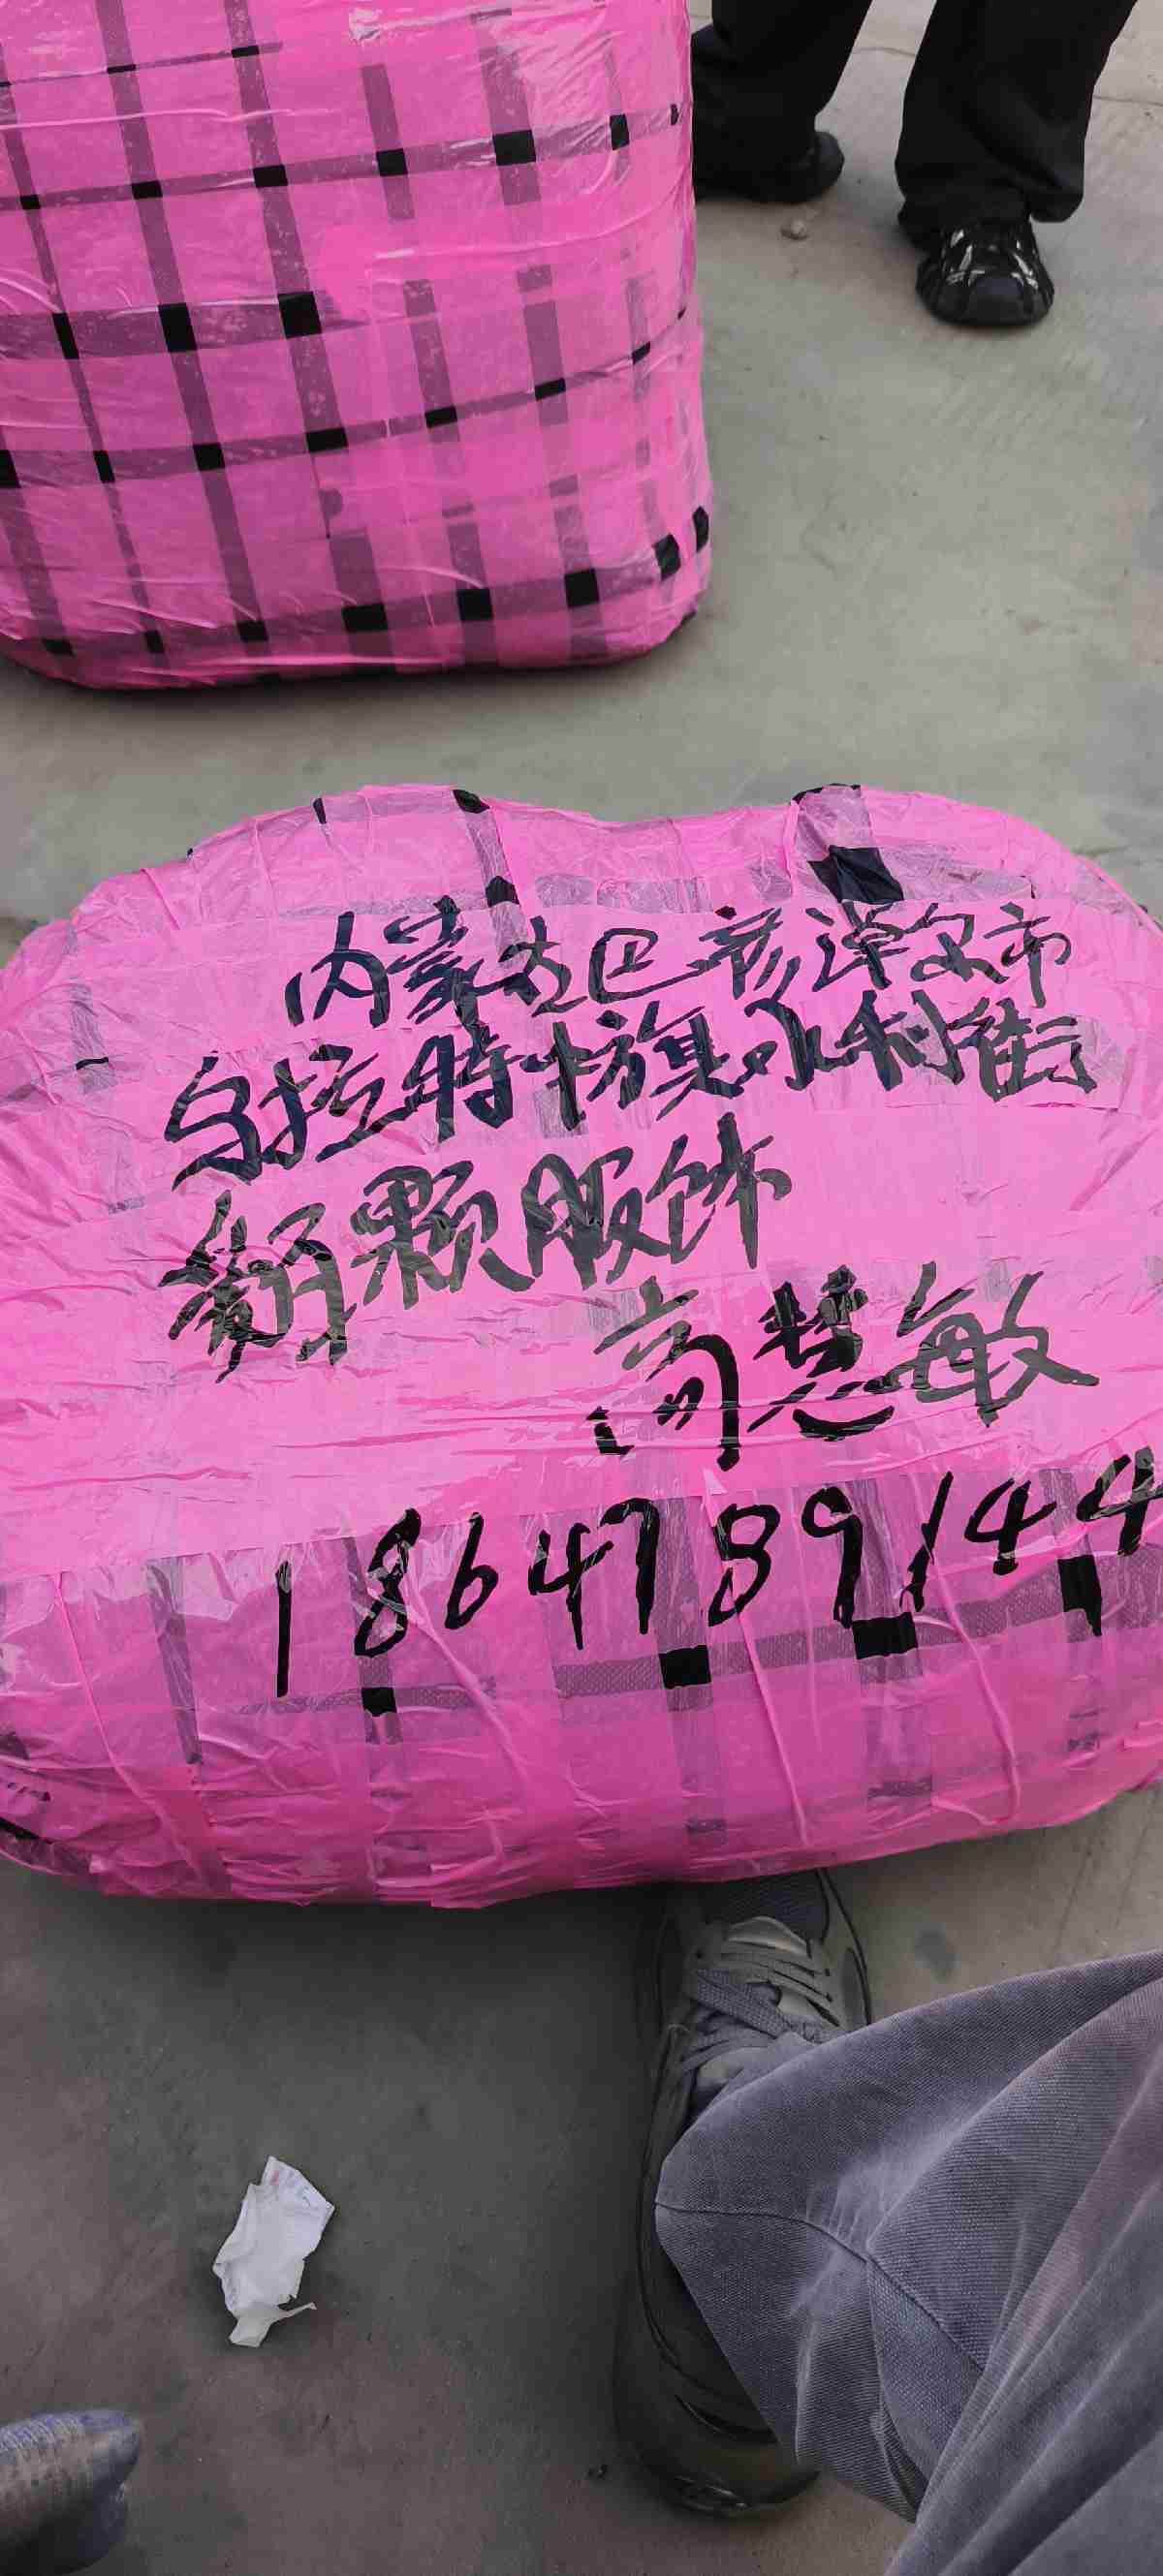 内蒙古巴彦淖尔市
乌拉特中旗水利街
颗服饰
高慧敏
18647891444